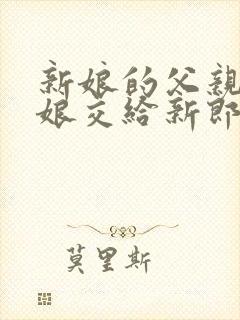 新娘的父親
娘交給新郎
莫里斯